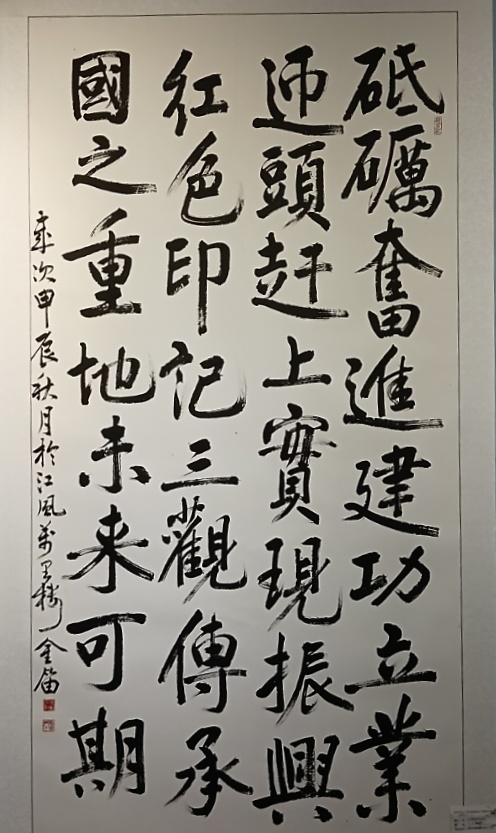 砥礪奮進建功立業
迎頭趕上實現振興
红色印记三觀傳承
國之重地未来可期
歲次甲辰秋月於江風萬里樓金笛